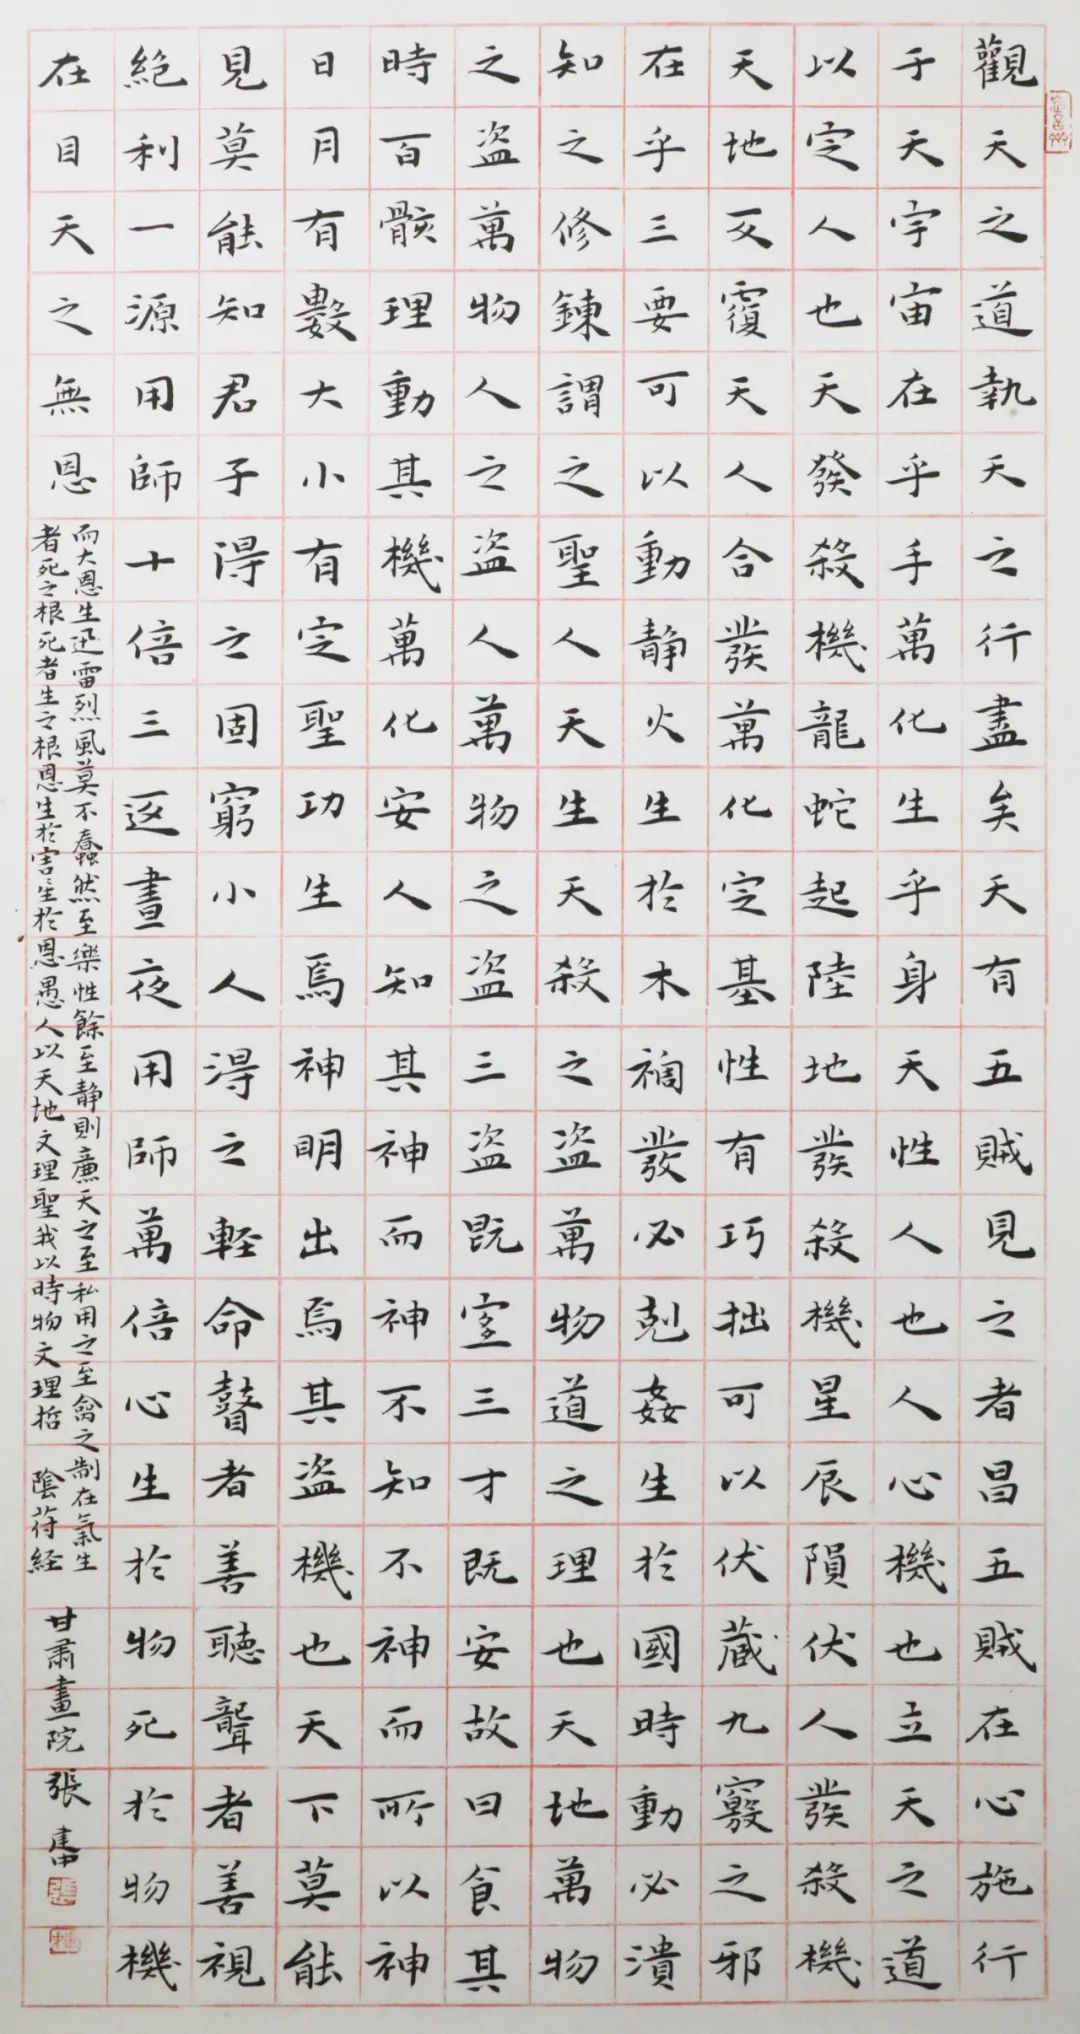 觀天之道執天之行盡矣天有五賊見之者昌五賊在心施行
于天宇宙在乎手萬化生乎身天性人也人心機也立天之道
以定人也天發殺機龍蛇起陸地發殺機星辰隕伏人發殺機
天地反覆天人合發萬化定基性有巧拙可以伏藏九竅之邪
在乎三要可以動静火生於木禍發必剋姦生於國時動必潰
知之修鍊謂之聖人天生天殺之盗萬物道之理也天地萬物
之盗萬物人之盗人萬物之盗三盗既宜三才既安故曰食其
時百骸理動其機萬化安人知其神而神不知不神而所以神
日月有數大小有定聖功生焉神明出焉其盗機也天下莫能
見莫能知君子得之固窮小人得之輕命瞽者善聽聾者善視
絶利一源用師十倍三返晝夜用師萬倍心生於物死於物機
在目天之無恩
而大恩生迅雷烈風莫不蠢然至樂性餘至静則廉天之至私用之至禽之制在氣生
者死之根死者生之根恩生於害〻生於恩愚人以天地文理聖我以時物文理哲 陰符経
甘肅畫院 張